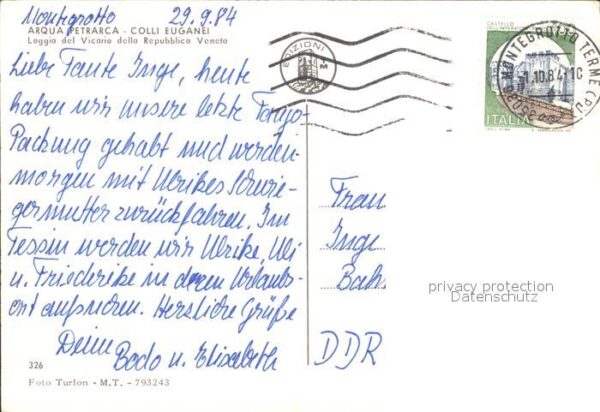 Montegrotto 29.9.84
ARQUA PETRARCA - COLLI EUGANEI
Loggia del Vicario della Repubblica Veneta
Liebe Tante Inge, heute
haben wir unsere letzte Fango-
Packung gehabt und werden
morgen mit Ulrikes Schwie-
germutter zurückfahren. Im
Tessin werden wir Ulrike, Uli
u. Friederike in deren Urlaubs-
ort aufsuchen. Herzliche Grüße
Deine
Bodo u. Elisabeth
326
Foto Turlon - M.T. - 793243
EDIZIONI
M
CASTELLO
ITALIA
MONTEGROTTO TERME (PD)
1.10.84
Frau
Inge
DDR
privacy protection
Datenschutz